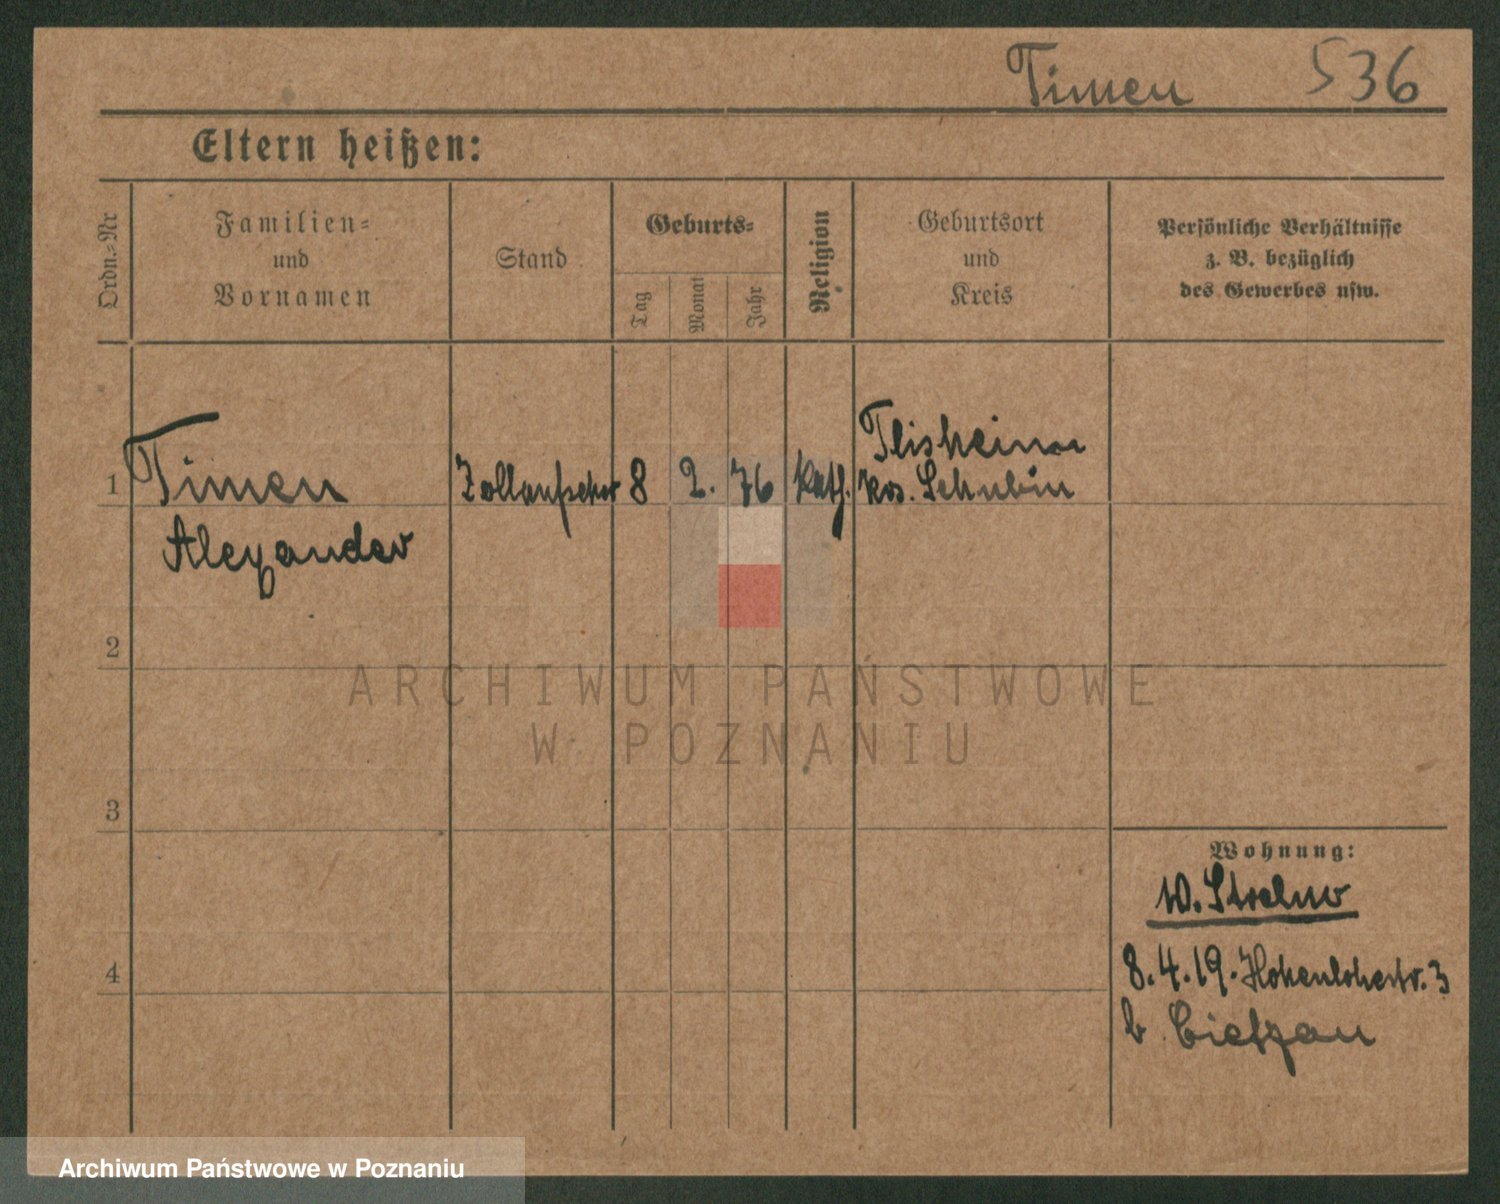 Timen 536
Eltern heißen:
Ordn.-Nr
Familien-
und
Vornamen
Stand
Geburts-
Tag
Monat
Jahr
Religion
Geburtsort
und
Kreis
Persönliche Verhältnisse
z. B. bezüglich
des Gewerbes usw.
Tlisheim
1 Timen Zollaufseher 8 2. 76 kath. Krs. Schubin
Alexander
2
ARCHIWUM PAŃSTWOWE
W POZNANIU
3
Wohnung:
W. Strelno
4
8.4.19. Hohenlohestr. 3
b
Archiwum Państwowe w Poznaniu